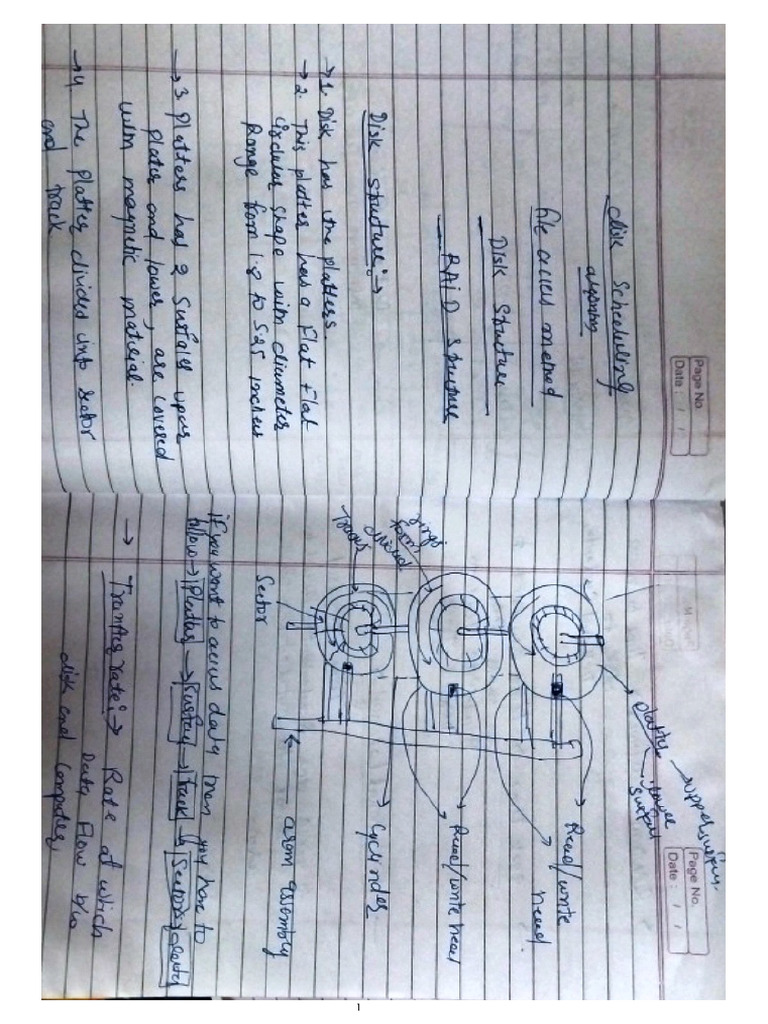 Page No.
Date : / /
Disk Scheduling
file access method
Disk Structure
RAID Structure
Disk structure:→
→ 1. Disk has the platters.
→ 2. This platter has a flat flat
Circular shape with diameter
Range from 1.8 to 5.25 inches
→ 3. Platters has 2 surfaces upper
plates and lower, are covered
with magnetic material.
→ 4 The platter divided into sector
and track
Page No.
Date : / /
upper surface
platter
lower
surface
Read/write
head
Read/write head
Cylinder
arom assembly
rings
form
divided
Tracks
Sector
if you want to access data then you have to
follow → Platter → Surface → Track → Sector → data
→ Transfer rate:→ Rate at which
Data Flow b/w
disk and computer
1